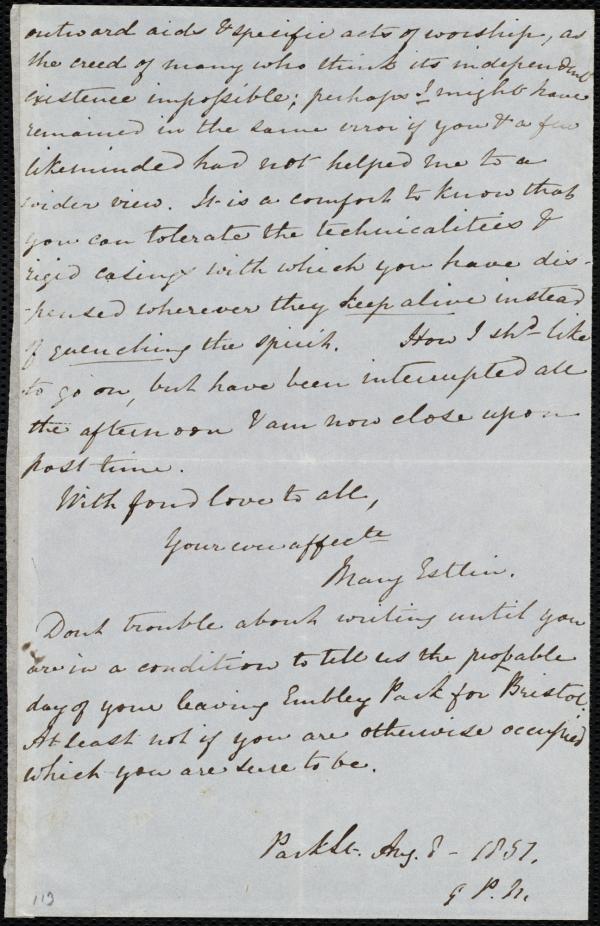 outward aids & specific acts of worship, as
the creed of many who think its independent
existence impossible; perhaps I might have
remained in the same error if you & a few
likeminded had not helped me to a
wider view. It is a comfort to know that
you can tolerate the technicalities &
rigid casings with which you have dis-
-pensed wherever they keep alive instead
of quenching the spirit. How I shd like
to go on, but have been interrupted all
the afternoon & am now close upon
post time.
With fond love to all,
Your ever affecte
Mary Estlin.
Dont trouble about writing until you
are in a condition to tell us the probable
day of your leaving Embley Park for Bristol.
At least not if you are otherwise occupied
which you are sure to be.
Park St. Aug. 8 - 1851.
9 P.M.
113